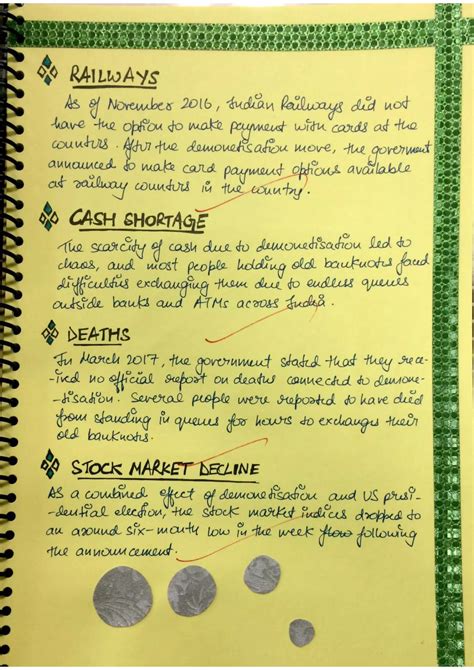 RAILWAYS
As of November 2016, Indian Railways did not
have the option to make payment with cards at the
counters. After the demonetisation move, the goverment
announced to make card payment options available
at railway counters in the country.
CASH SHORTAGE
The scarcity of cash due to demonetisation led to
chaos, and most people holding old banknotes faced
difficulties exchanging them due to endless queues
outside banks and ATMs across India.
DEATHS
In March 2017, the government stated that they rece-
-ived no official report on deaths connected to demone-
-tisation. Several people were reported to have died
from standing in queues for hours to exchange their
old banknotes.
STOCK MARKET DECLINE
As a combined effect of demonetisation and US presi-
-dential election, the stock market indices dropped to
an around six-month low in the week following
the announcement.